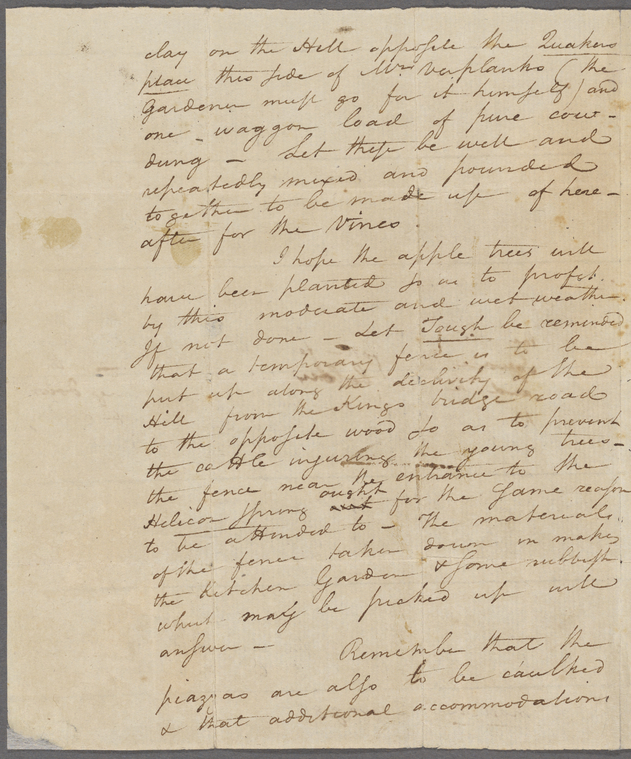 clay on the Hill opposite the Quakers
place this side of Mrs Verplanks (the
Gardener must go for it himself) and
one waggon load of pure cow-
dung – Let these be well and
repeatedly mixed and pounded
together to be made up of here-
after for the Vines.
I hope the apple trees will
have been planted so as to profit
by this moderate and wet weather.
If not done – Let Tough be reminded
that a temporary fence is to be
put up along the declivity of the
Hill from the Kings bridge road
to the opposite wood so as to prevent
the cattle injuring the young trees –
the fence near the entrance to the
Helicon Spring ought for the same reason
to be attended to – The materials
of the fence taken down in making
the Kitchen Garden & some rubbish
which may be picked up will
answer –
Remember that the
piazzas are also to be caulked
& that additional accommodations